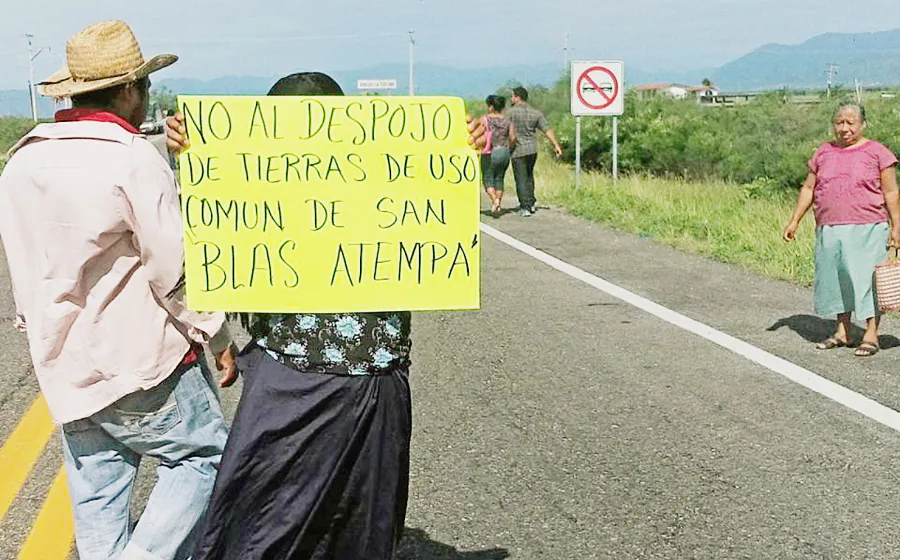 NO AL DESPOJO
DE TIERRAS DE USO
COMUN DE SAN
"BLAS ATEMPA"